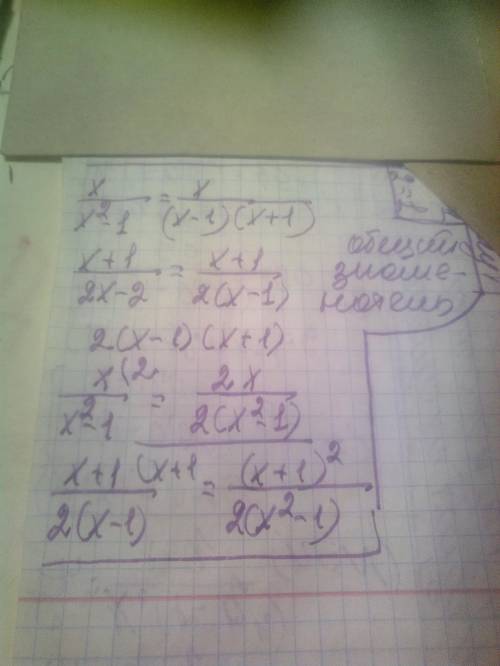 x/(x²-1) = x/((x-1)(x+1))
(x+1)/(2x-2) = (x+1)/(2(x-1))
общий
знаме-
натель
2(x-1)(x+1)
x(2/(x²-1) = 2x/(2(x²-1))
x+1(x+1/(2(x-1)) = (x+1)²/(2(x²-1))